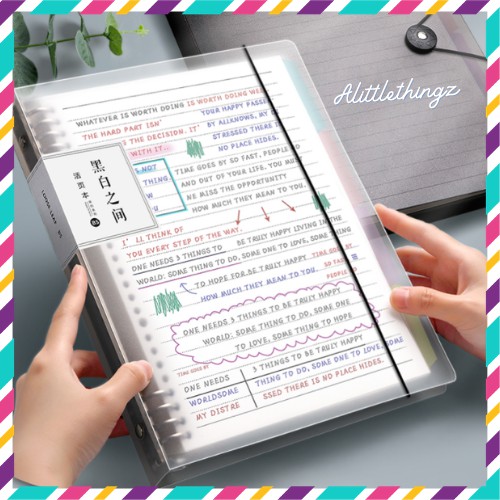 Alittlethingz
WHATEVER IS WORTH DOING IS WORTH DOING WELL
'THE HARD PART ISN'
YOUR HAPPY PASSE
THE DECISION. IT'
BY ALL KNOWS, MY
WITH IT
STRESSED THERE I
NO PLACE HIDES.
NOT
TIME GOES BY SO FAST, PEOPLE GO
THING,
AND OUT OF YOUR LIFE. YOU MUST
WE MISS THE OPPORTUNITY
HOW MUCH THEY MEAN TO YOU.
黑白之间
活页本
B5
I' LL THINK OF
YOU EVERY STEP OF THE WAY.
ONE NEEDS 3 THINGS TO BE TRULY HAPPY LIVING IN THE
WORLD: SOME THING TO DO, SOME ONE TO LOVE, SOME THING
TO HOPE FOR BE TRULY HAPPY
HOW MUCH THEY MEAN TO YOU.
ONE NEEDS 3 THINGS TO BE TRULY HAPPY
WORLD: SOME THING TO DO, SOME ONE
TO LOVE, SOME THING TO HOPE
TIME GOES BY
3 THINGS TO BE TRULY HAPPY
ONE NEEDS
THING TO DO, SOME ONE TO LOVE, SOME
WORLDSOME
SSED THERE IS NO PLACE HIDES.
MY DISTRE